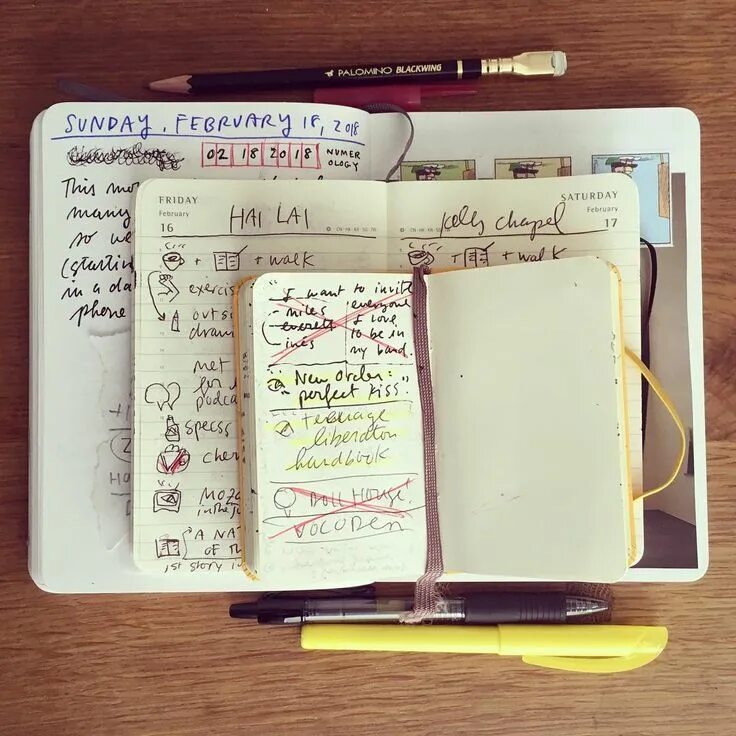 PALOMINO BLACKWING
SUNDAY, FEBRUARY 18, 2018
02 18 20 18 NUMER
OLOGY
This
many
so we
(starting
in a da
phone
FRIDAY
February
16
HAI LAI
+ + walk
exercis
outsi
met
for
podca
specs
cher
MOZA
in the
A NA
OF T
1st story
SATURDAY
February
17
Kelly chapel
+ + walk
"I want to invite
- miles
- everett
- ines
everyone
I love
to be in
my band.
New Order:
"perfect kiss"
teenage
liberation
handbook
DOLL HOUSE!
VOCODER